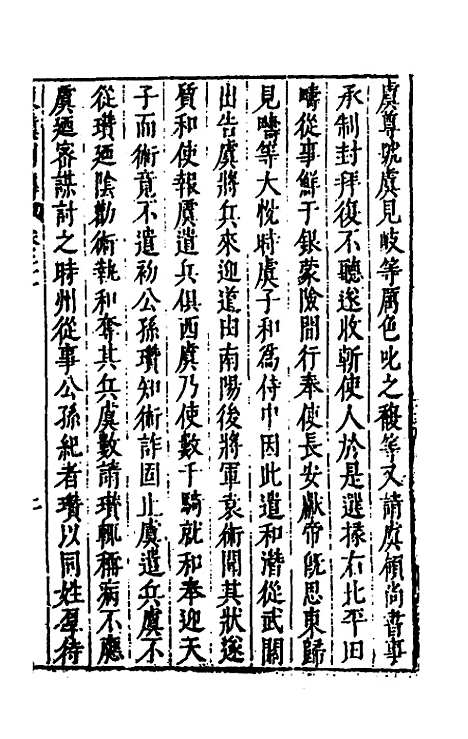 虞尊號虞見岐等厲色叱之馥等又請虞領尚書事
承制封拜復不聽遂收斬使人於是選掾右北平田
疇從事鮮于銀蒙險間行奉使長安獻帝旣思東歸
見疇等大悅時虞子和爲侍中因此遣和潛從武關
出告虞將兵來迎道由南陽後將軍袁術聞其狀遂
質和使報虞遣兵俱西虞乃使數千騎就和奉迎天
子而術竟不遣初公孫瓚知術詐固止虞遣兵虞不
從瓚廼陰勸術執和奪其兵虞數請瓚輒稱病不應
虞廼密謀討之時州從事公孫紀者瓚以同姓厚待